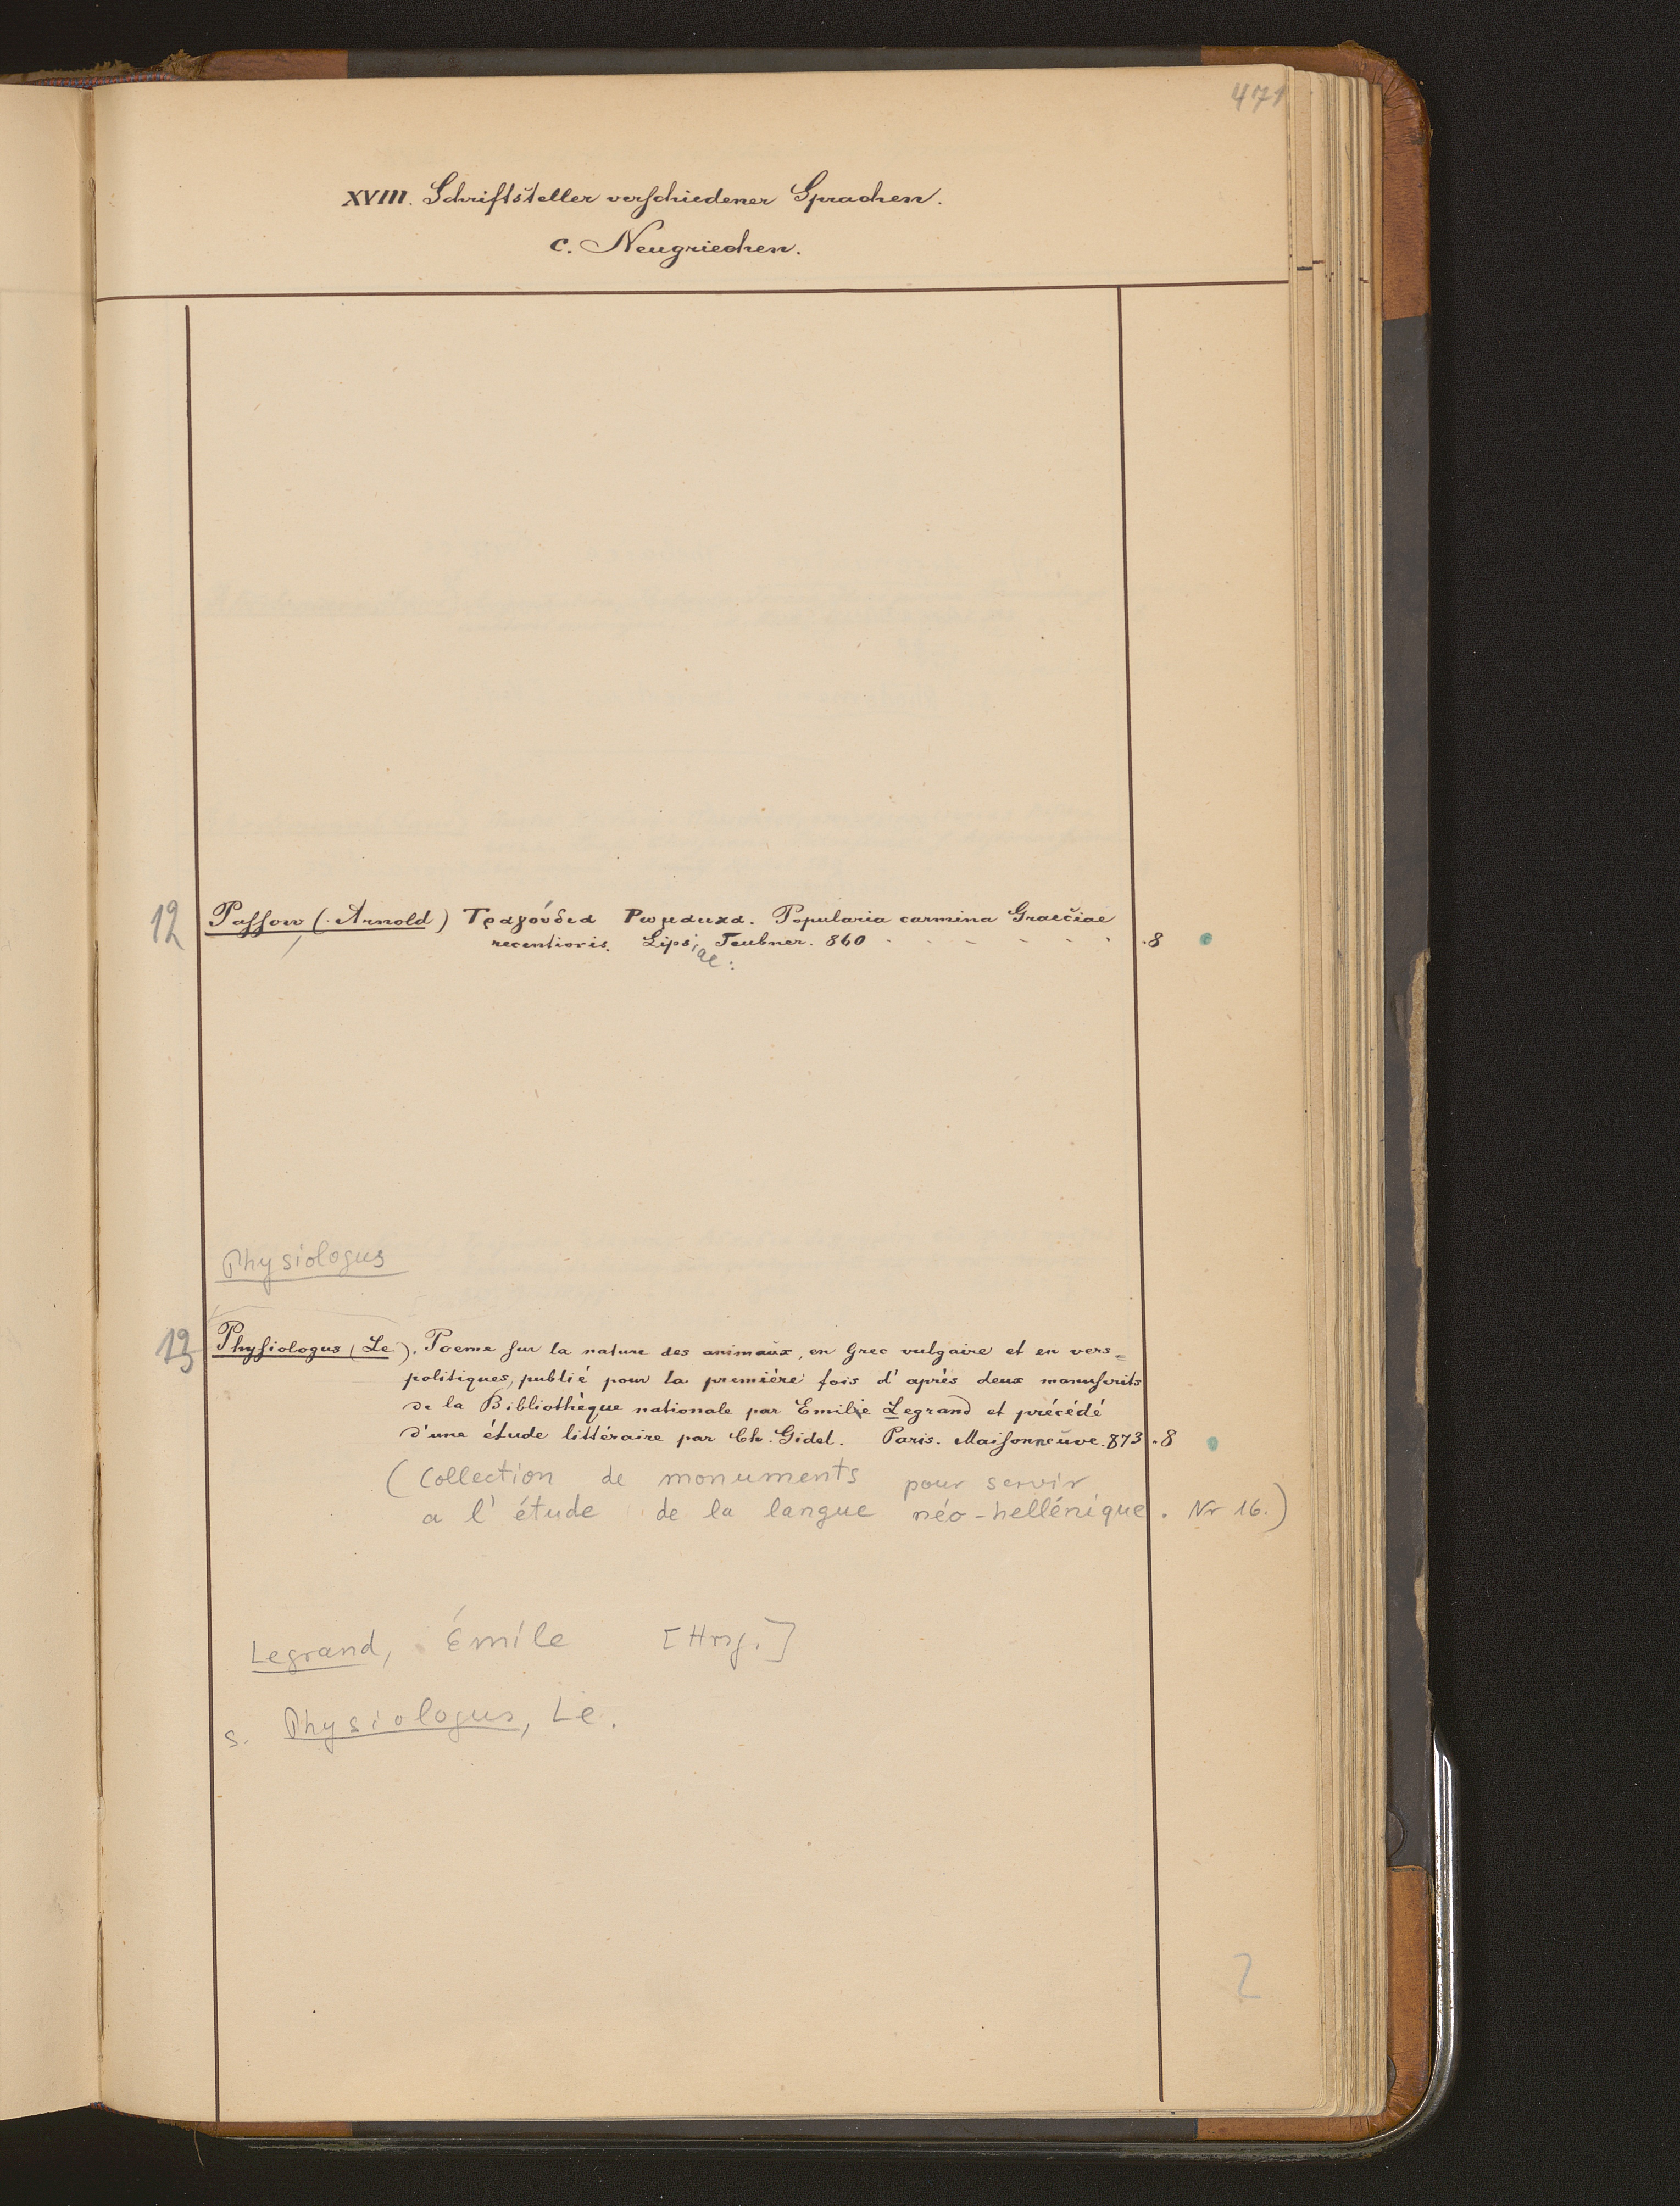 471
XVIII. Schriftsteller verschiedener Sprachen.
c. Neugriechen.
12 Passow (Arnold) Τραγούδια Ρωμαιικα. Popularia carmina Graeciae
recentioris. Lipsiae: Teubner. 860 . . . . . . . 8
Physiologus
13 Physiologus (Le). Poeme sur la nature des animaux, en Grec vulgaire et en vers=
politiques, publié pour la première fois d'après deux manuscrits
de la Bibliothèque nationale par Emile Legrand et précédé
d'une étude littéraire par Ch. Gidel. Paris. Maisonneuve. 873 . 8
(Collection de monuments pour servir
a l'étude de la langue néo-hellénique. Nr 16.)
Legrand, Émile [Hrsg.]
s. Physiologus, Le.
2